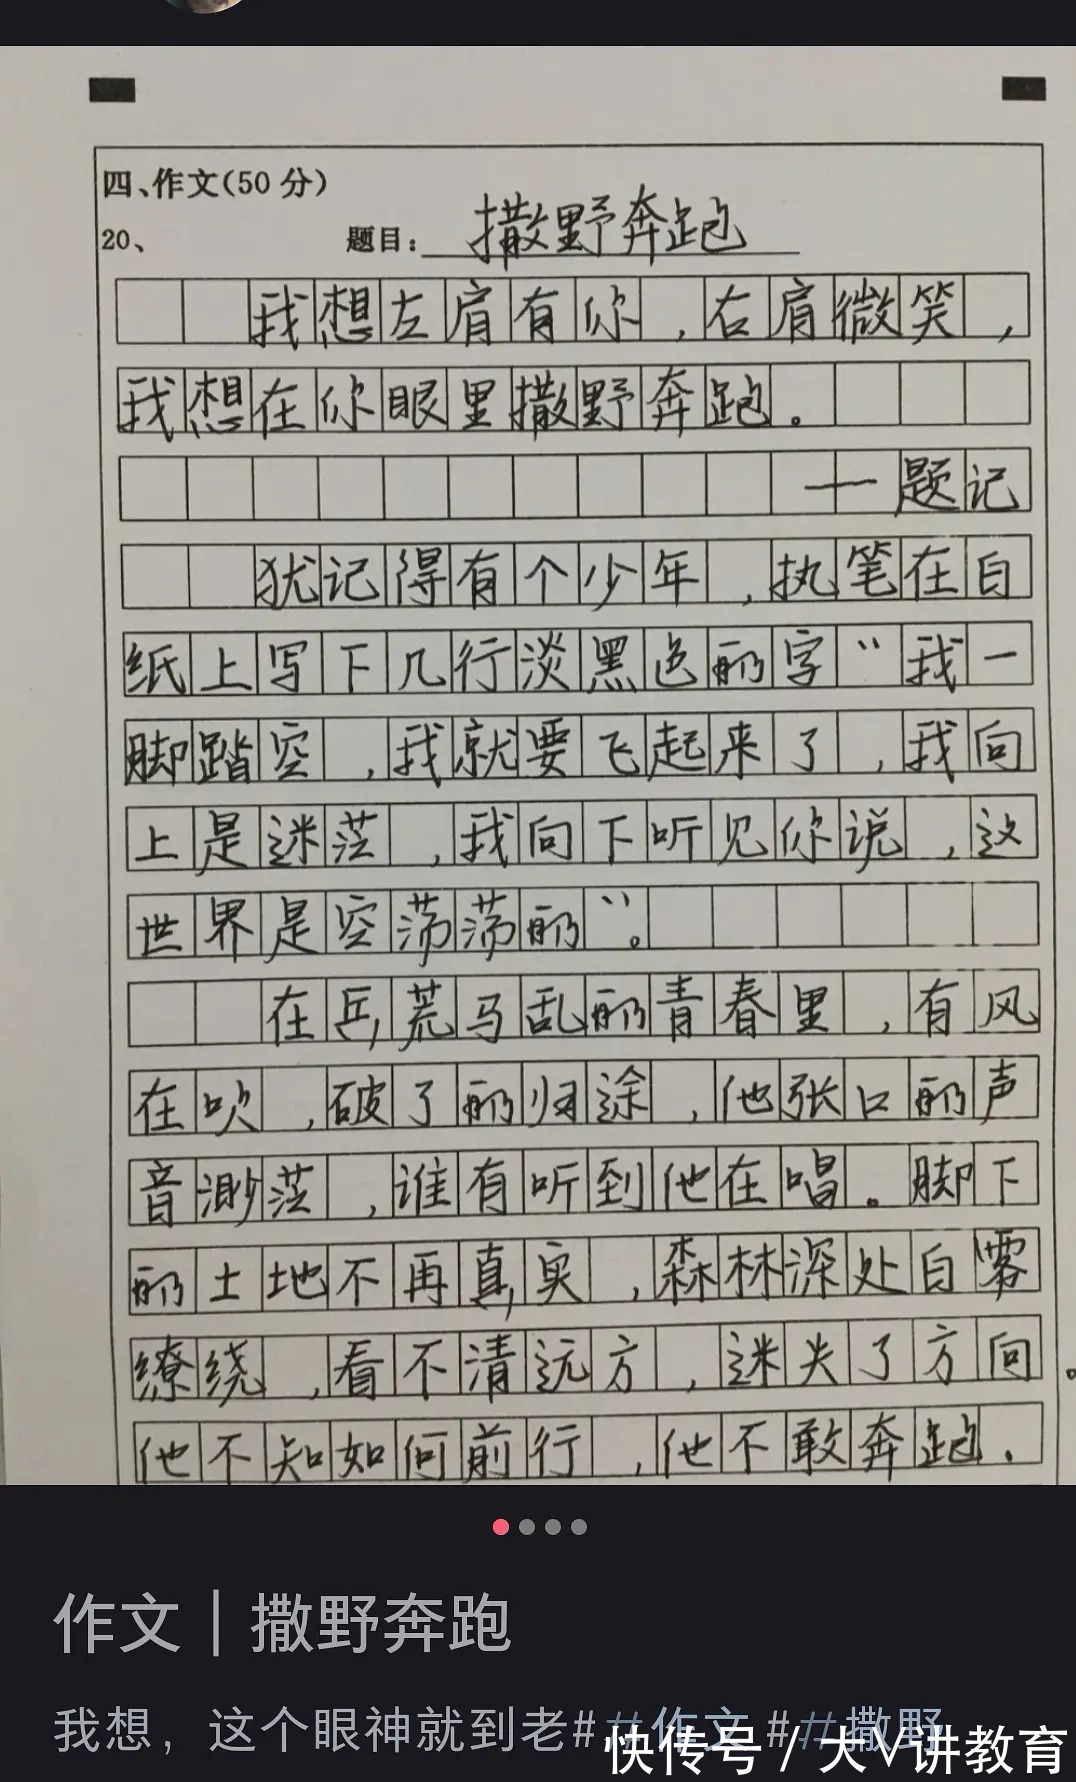 四、作文(50 分)
20、 题目: 撒野奔跑
我想左肩有你,右肩微笑,
我想在你眼里撒野奔跑。
——题记
犹记得有个少年,执笔在白
纸上写下几行淡黑色的字“我一
脚踏空,我就要飞起来了,我向
上是迷茫,我向下听见你说,这
世界是空荡荡的”。
在兵荒马乱的青春里,有风
在吹,破了的归途,他张口的声
音渺茫,谁有听到他在唱。脚下
的土地不再真实,森林深处白雾
缭绕,看不清远方,迷失了方向。
他不知如何前行,他不敢奔跑.
作文｜撒野奔跑
我想，这个眼神就到老##作文 ##撒野
快传号 / 大V讲教育